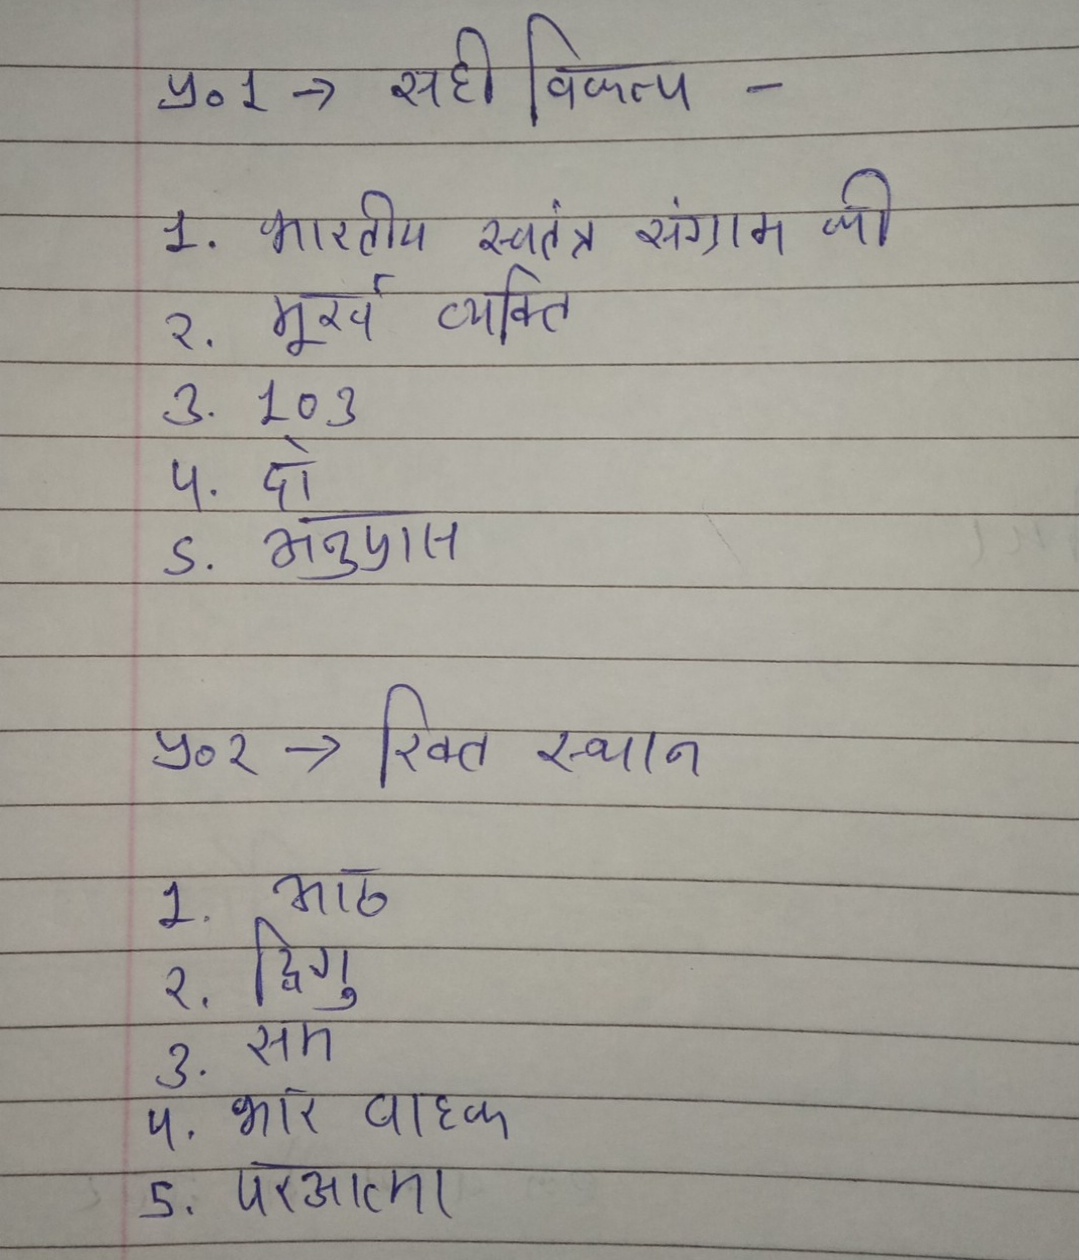 प्र०1 → सही विकल्प -
1. भारतीय स्वतंत्र संग्राम की
2. मूर्ख व्यक्ति
3. 103
4. दो
5. अनुप्रास
प्र०2 → रिक्त स्थान
1. आठ
2. द्विगु
3. सम
4. भार वाहक
5. परआत्मा